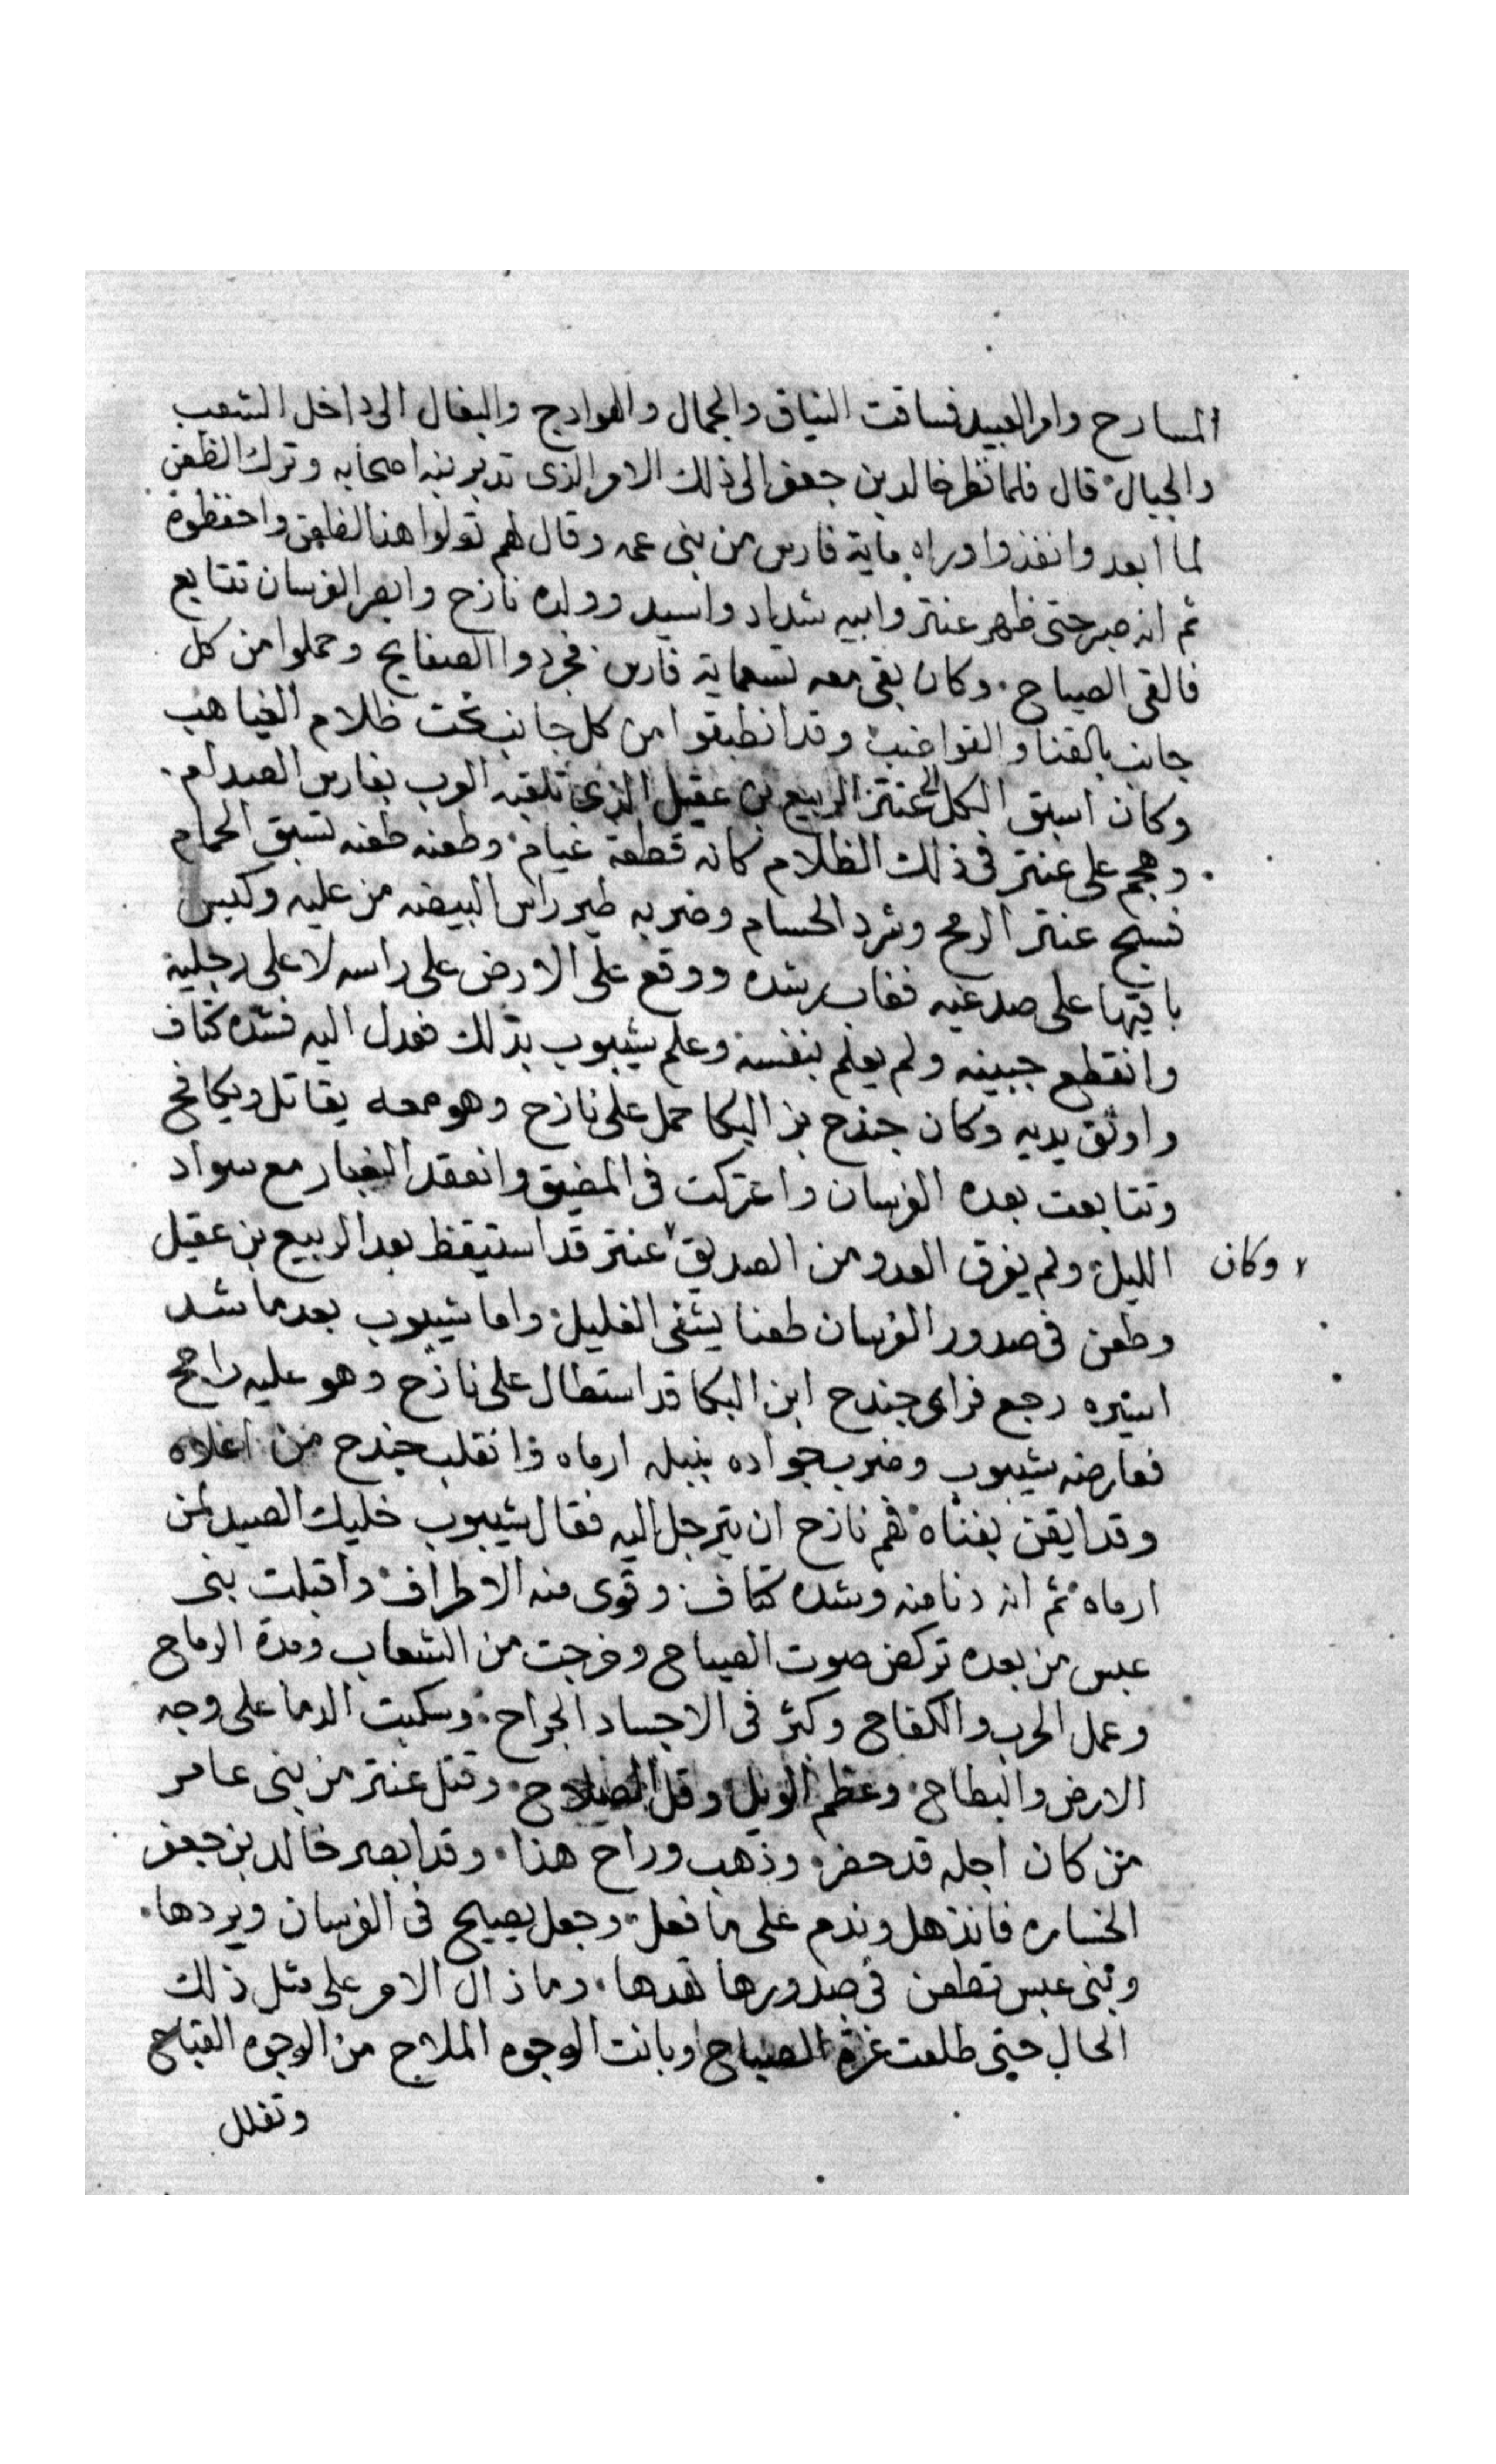 المسارح وامر العبيد فساقت النياق والجمال والهوادج والبغال الى داخل الشعب
والجبال قال فلما نظر خالد بن جعفر الى ذلك الامر الذى تدبر بينه اصحابه وترك الظعن
لما ابعد وانفذوا وراه ماية فارس من بنى عمه وقال لهم تولوا هذا الظعن واحفظوه
ثم انه صبر حتى ظهر عنتر وابيه شداد واسيد وولده نازح وابصر الفرسان تتابع
فالقى الصياح وكان بقى معه تسعماية فارس فجردوا الصفايح وحملوا من كل
جانب بالقنا والقواضب وقد انطبقوا من كل جانب تحت ظلام الغياهب
وكان اسبق الكل الى عنتر الربيع بن عقيل الذى تلقبه العرب بفارس الصدام
وهجم على عنتر فى ذلك الظلام كانه قطعة غيام وطعنه طعنه تسبق الحمام
فسبح عنتر الرمح وشرد الحسام وضربه طير راس البيضه من عليه وكبس
باقيها على صدغيه فغاب رشده ووقع على الارض على راسه لا على رجليه
وانقطع جبينه ولم يعلم بنفسه وعلم شيبوب بذلك فعدل اليه فشده كتاف
واوثق يديه وكان جندح بن البكا حمل على نازح وهو معه يقاتل ويكافح
وتتابعت بعده الفرسان واعتركت فى المضيق وانعقد الغبار مع سواد
الليل ولم يفرق العدو من الصديق عنتر قد استيقظ بعد الربيع بن عقيل
وكان
وطعن فى صدور الفرسان طعنا يشفى الغليل واما شيبوب بعد ما شد
اسيره رجع فراى جندح ابن البكا قد استطال على نازح وهو عليه راجح
فعارضه شيبوب وضرب جواده بنبله ارماه فانقلب جندح من اعلاه
وقد ايقن بفناه فهم نازح ان يترجل اليه فقال شيبوب خليك الصيد لمن
ارماه ثم انه دنا منه وشده كتاف وقوى منه الاطراف واقبلت بنى
عبس من بعده تركض صوت الصياح وخرجت من الشعاب ومدة الرماح
وعمل الحرب والكفاح وكثر فى الاجساد الجراح وسكبت الدما على وجه
الارض والبطاح وعظم الويل وقل الصلاح وقتل عنتر من بنى عامر
من كان اجله قد حضر وذهب وراح هذا وقد ابصر خالد بن جعفر
الخساره فانذهل وندم على ما فعل وجعل يصيح فى الفرسان ويردها
وبنى عبس تطعن فى صدورها تهدها وما زال الامر على مثل ذلك
الحال حتى طلعت غرة الصباح وبانت الوجوه الملاح من الوجوه القباح
وتفلل